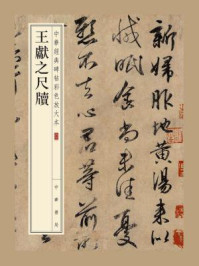 新婦服地黃湯來似
減眠食尚未佳憂
懸不去心君等前所
中華經典碑帖彩色放大本
王獻之尺牘
中華書局